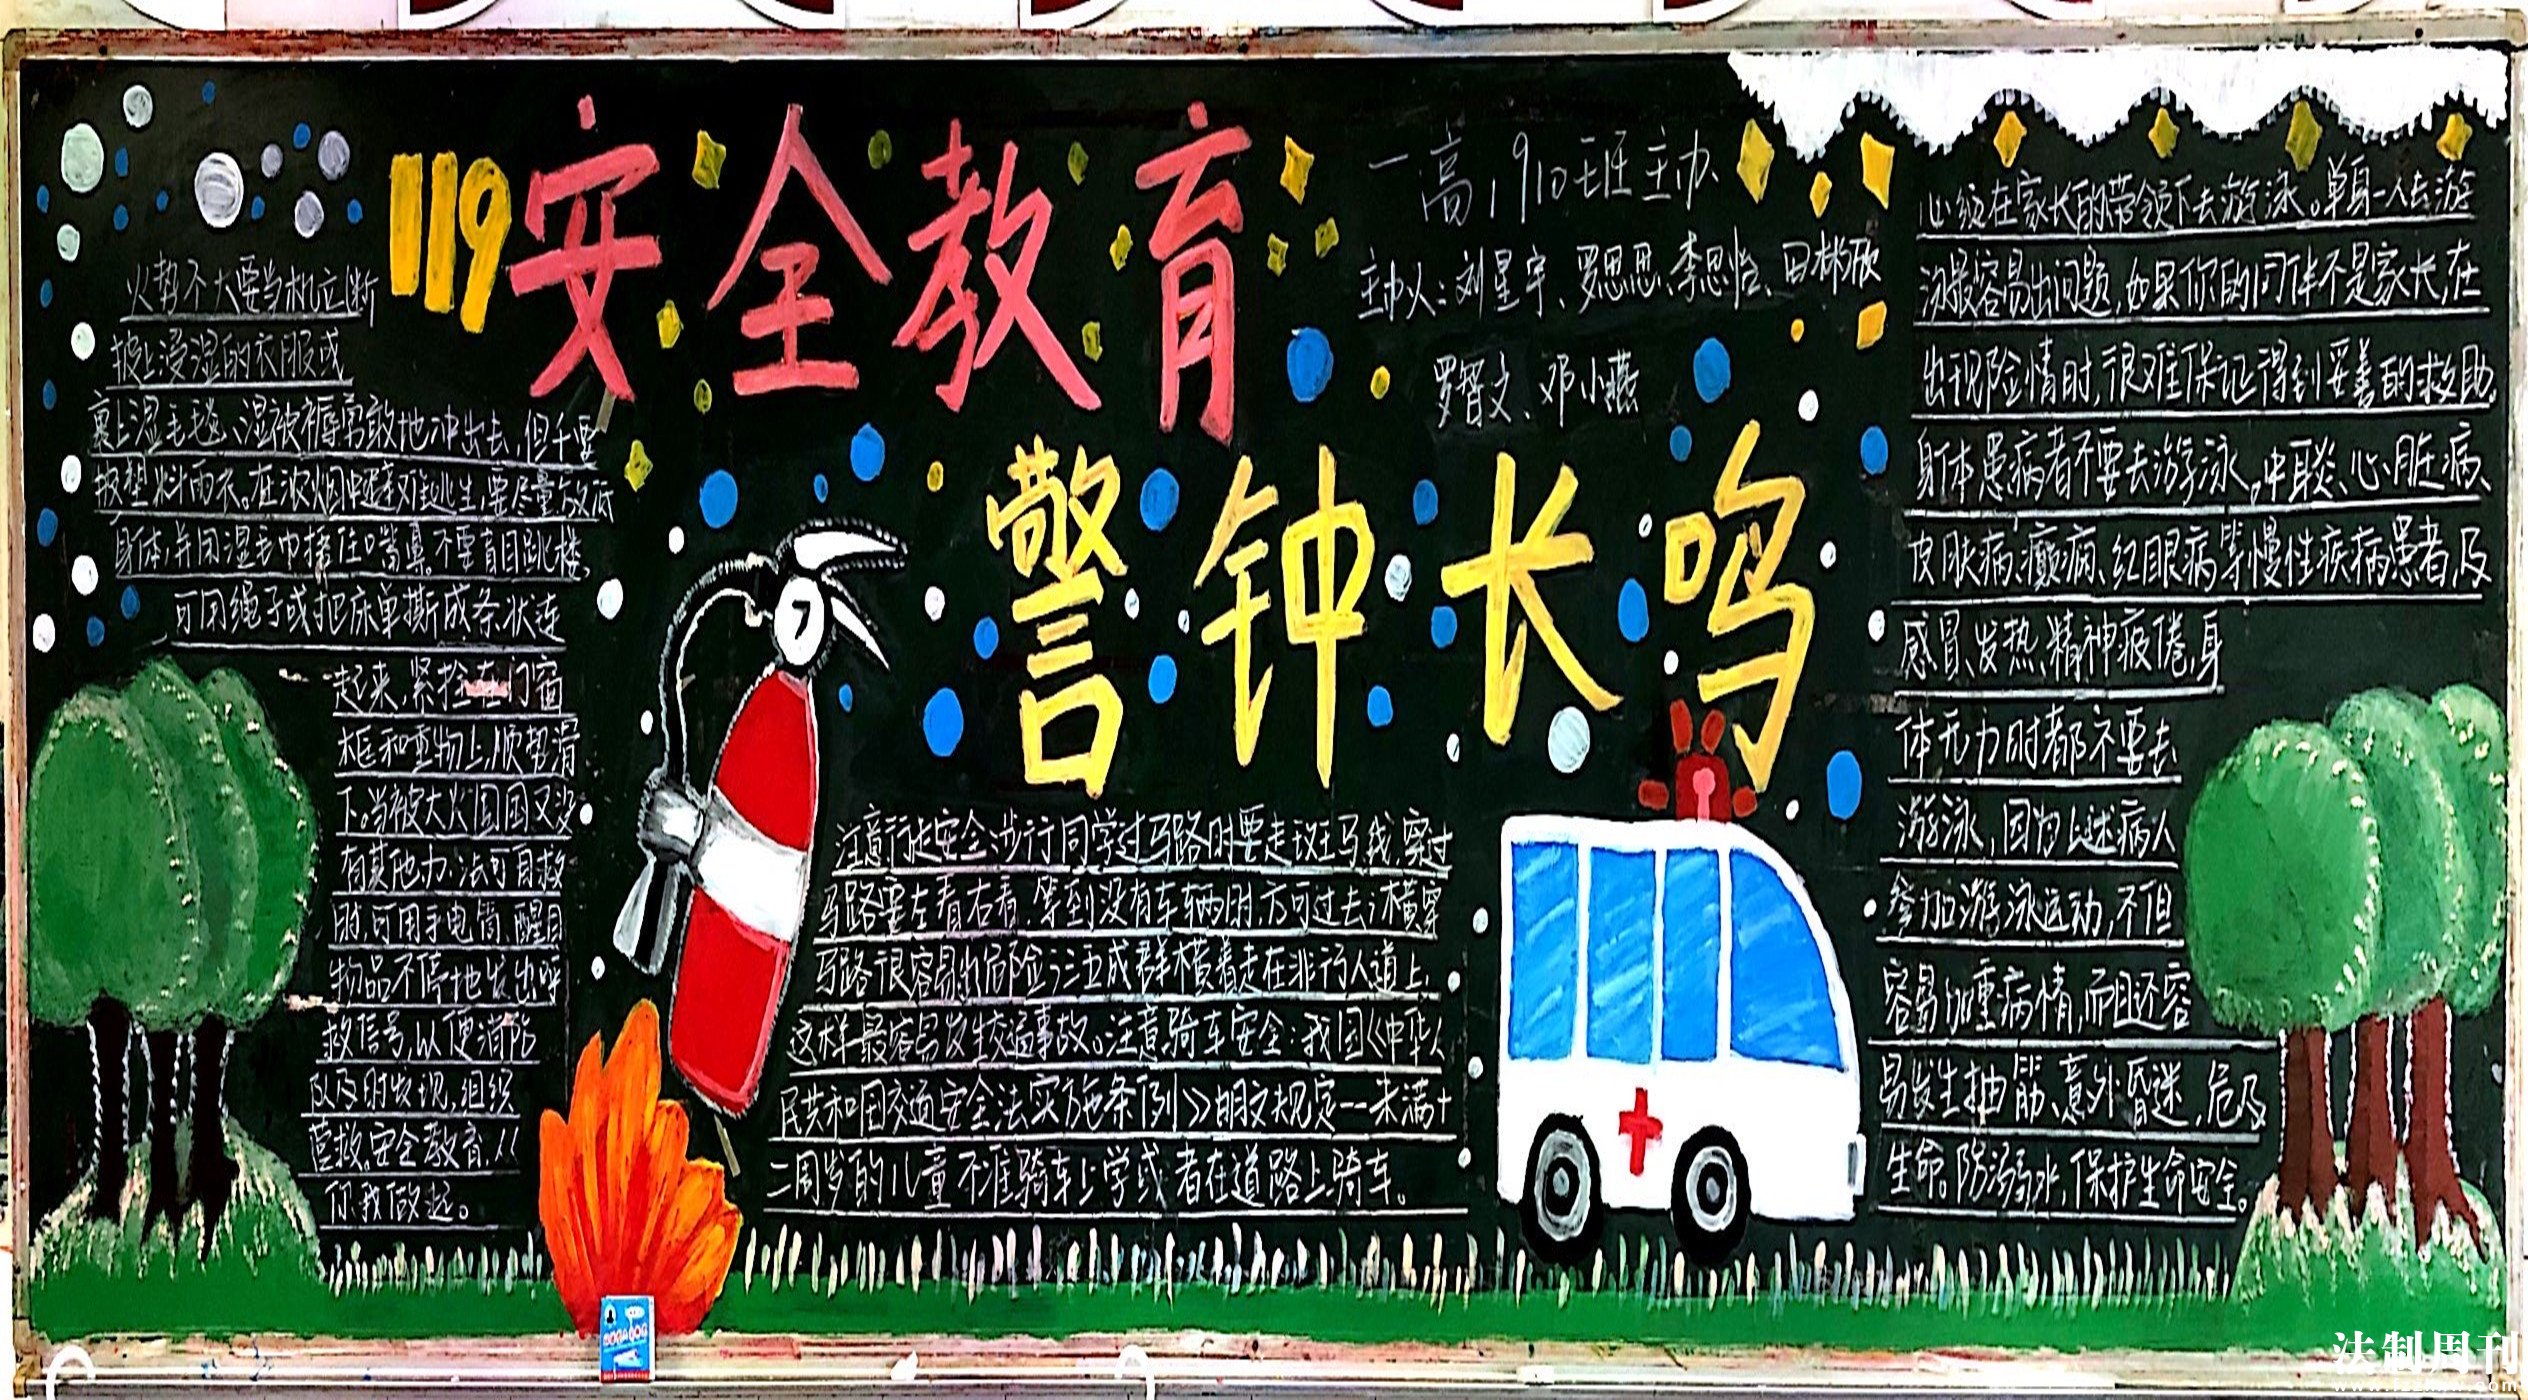 119安全教育
警钟长鸣
一高1910班主办
主办人:刘星宇、罗思思、李思怡、田彬欣
罗智文、邓小燕
火势不大要当机立断
披上浸湿的衣服或
裹上湿毛毯、湿被褥勇敢地冲出去,但千要
披塑料雨衣。在浓烟中避难逃生,要尽量放低
身体,并用湿毛巾捂住嘴鼻。不要盲目跳楼,
可用绳子或把床单撕成条状连
起来,紧拴在门窗
框和重物上,顺势滑
下。当被大火围困又没
有其他办法可自救
时,可用手电筒、醒目
物品不停地发出呼
救信号,以便消防
队及时发现,组织
营救。安全教育,从
你我做起。
注意行走安全:步行同学过马路时要走斑马线,穿过
马路要左看右看,等到没有车辆时,方可过去;横穿
马路很容易出危险;三五成群横着走在非行人道上,
这样最容易发生交通事故。注意骑车安全:我国《中华人
民共和国交通安全法实施条例》明文规定——未满十
二周岁的儿童不准骑车上学或者在道路上骑车。
必须在家长的带领下去游泳。单身一人去游
泳最容易出问题,如果你的同伴不是家长,在
出现险情时,很难保证得到妥善的救助。
身体患病者不要去游泳。中耳炎、心脏病、
皮肤病、癫痫、红眼病等慢性疾病患者,及
感冒、发热、精神疲倦、身
体无力时都不要去
游泳,因为上述病人
参加游泳运动,不但
容易加重病情,而且还容
易发生抽筋、意外昏迷,危及
生命。防溺水,保护生命安全。
法制周刊